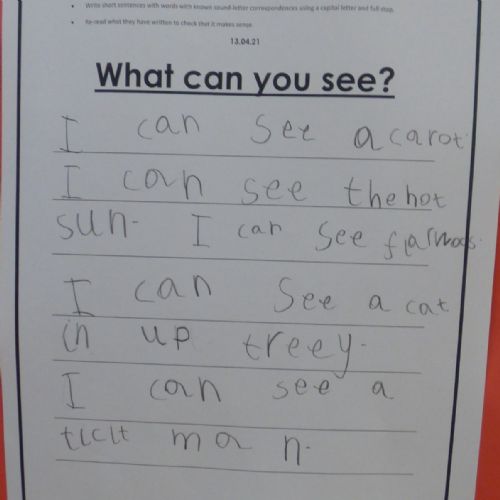 Write short sentences with words with known sound-letter correspondences using a capital letter and full stop.
Re-read what they have written to check that it makes sense.
13.04.21
What can you see?
I can see a carot.
I can see the hot
sun. I can see flarwos.
I can see a cat
in up treey.
I can see a
ticit man.